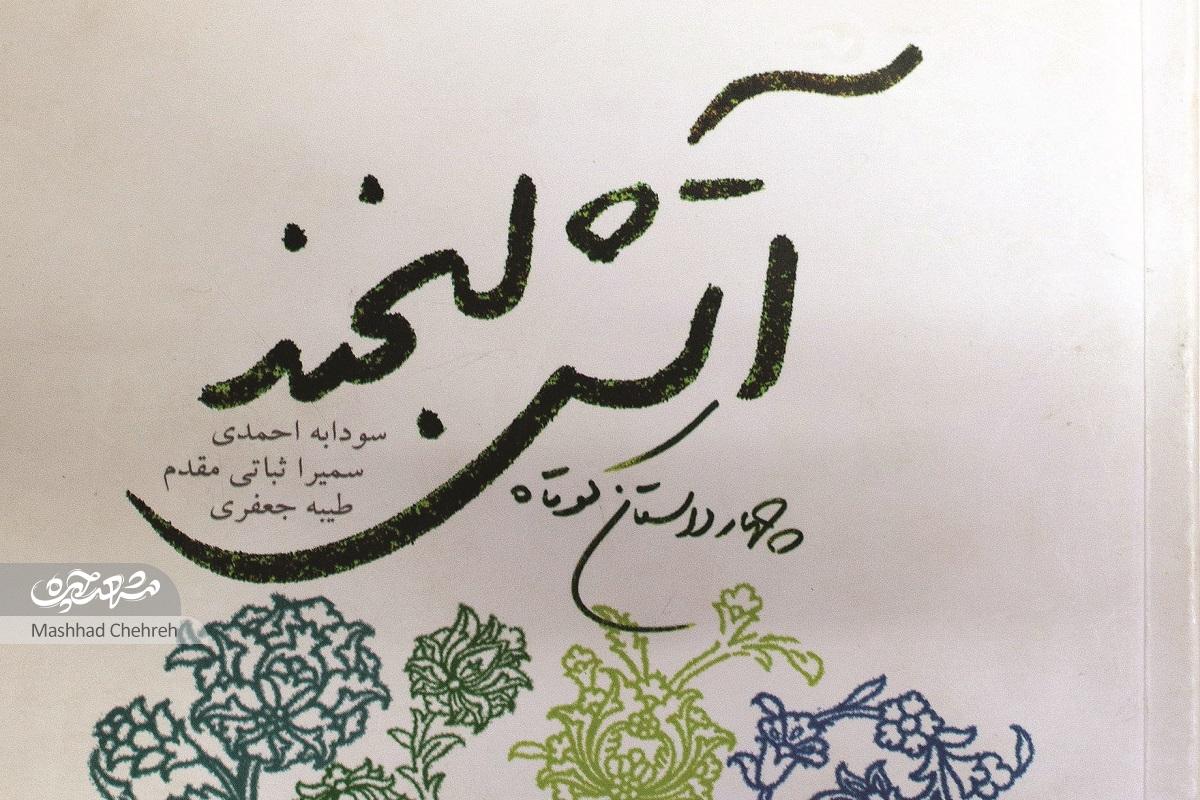 آتش لبخند
چهار داستان کوتاه
سودابه احمدی
سمیرا ثباتی مقدم
طیبه جعفری
مشهد چهره
Mashhad Chehreh